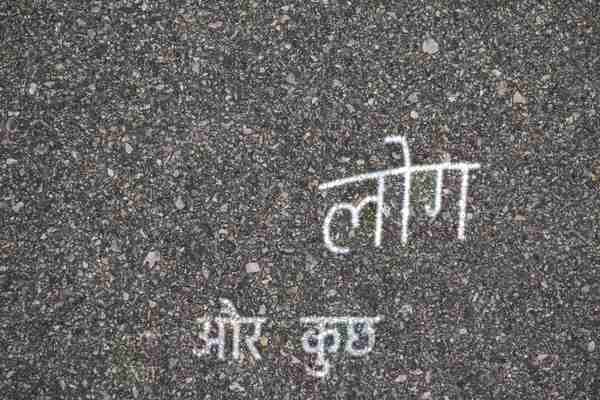 लोग
ओर कुछ